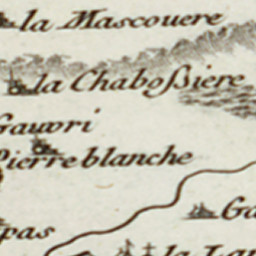 la Mascouere
la Chaboßiere
Gauvri
Pierre blanche
Ga
pas
la Lan